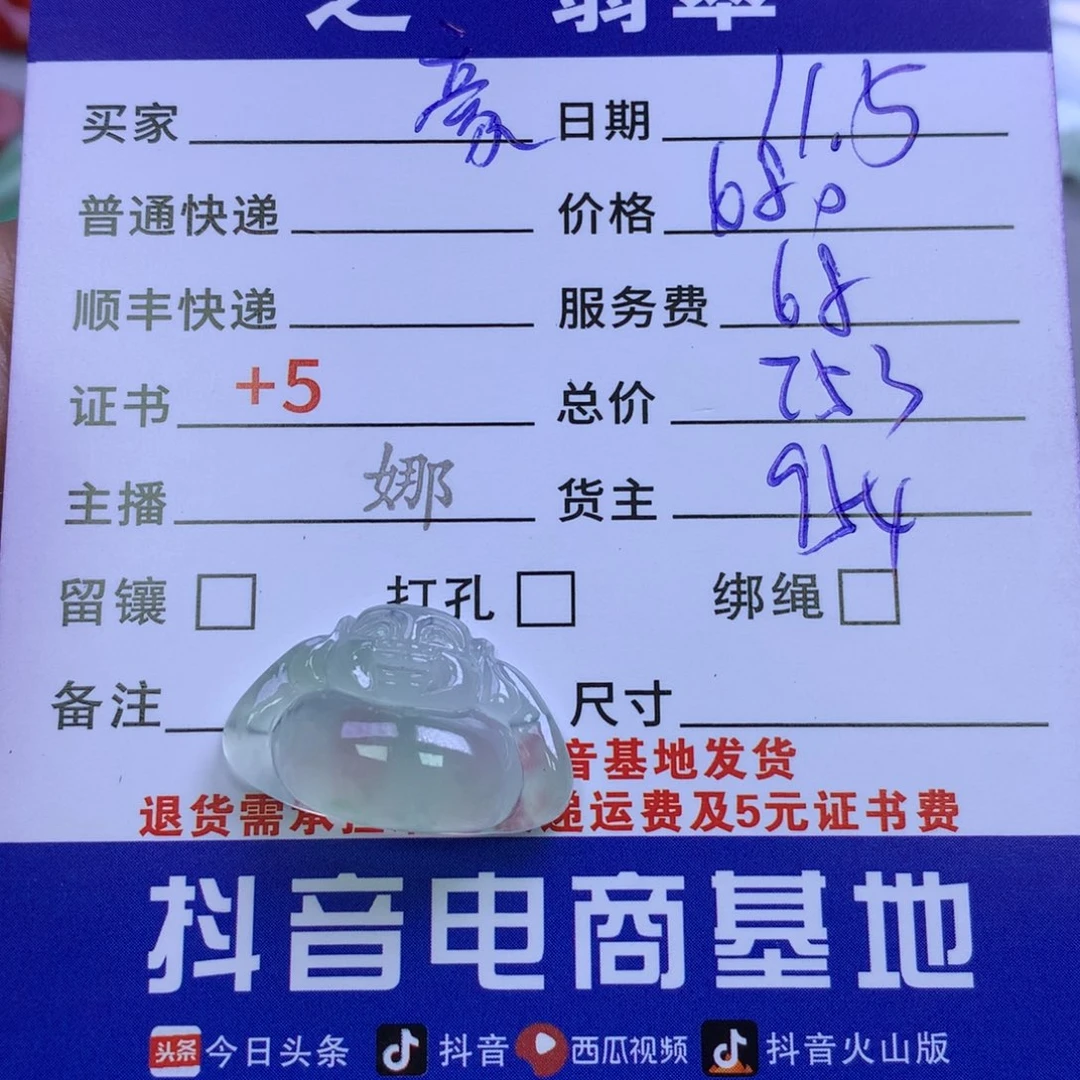 之 翡翠
买家 豪 日期 11.5
普通快递 价格 680
顺丰快递 服务费 68
证书 +5 总价 753
主播 娜 货主 954
留镶 打孔 绑绳
备注 尺寸
音基地发货
退货需承担 递运费及5元证书费
抖音电商基地
头条 今日头条 抖音 西瓜视频 抖音火山版